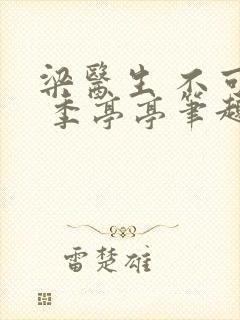 梁醫生 不可
季亭亭筆趣
雷楚雄